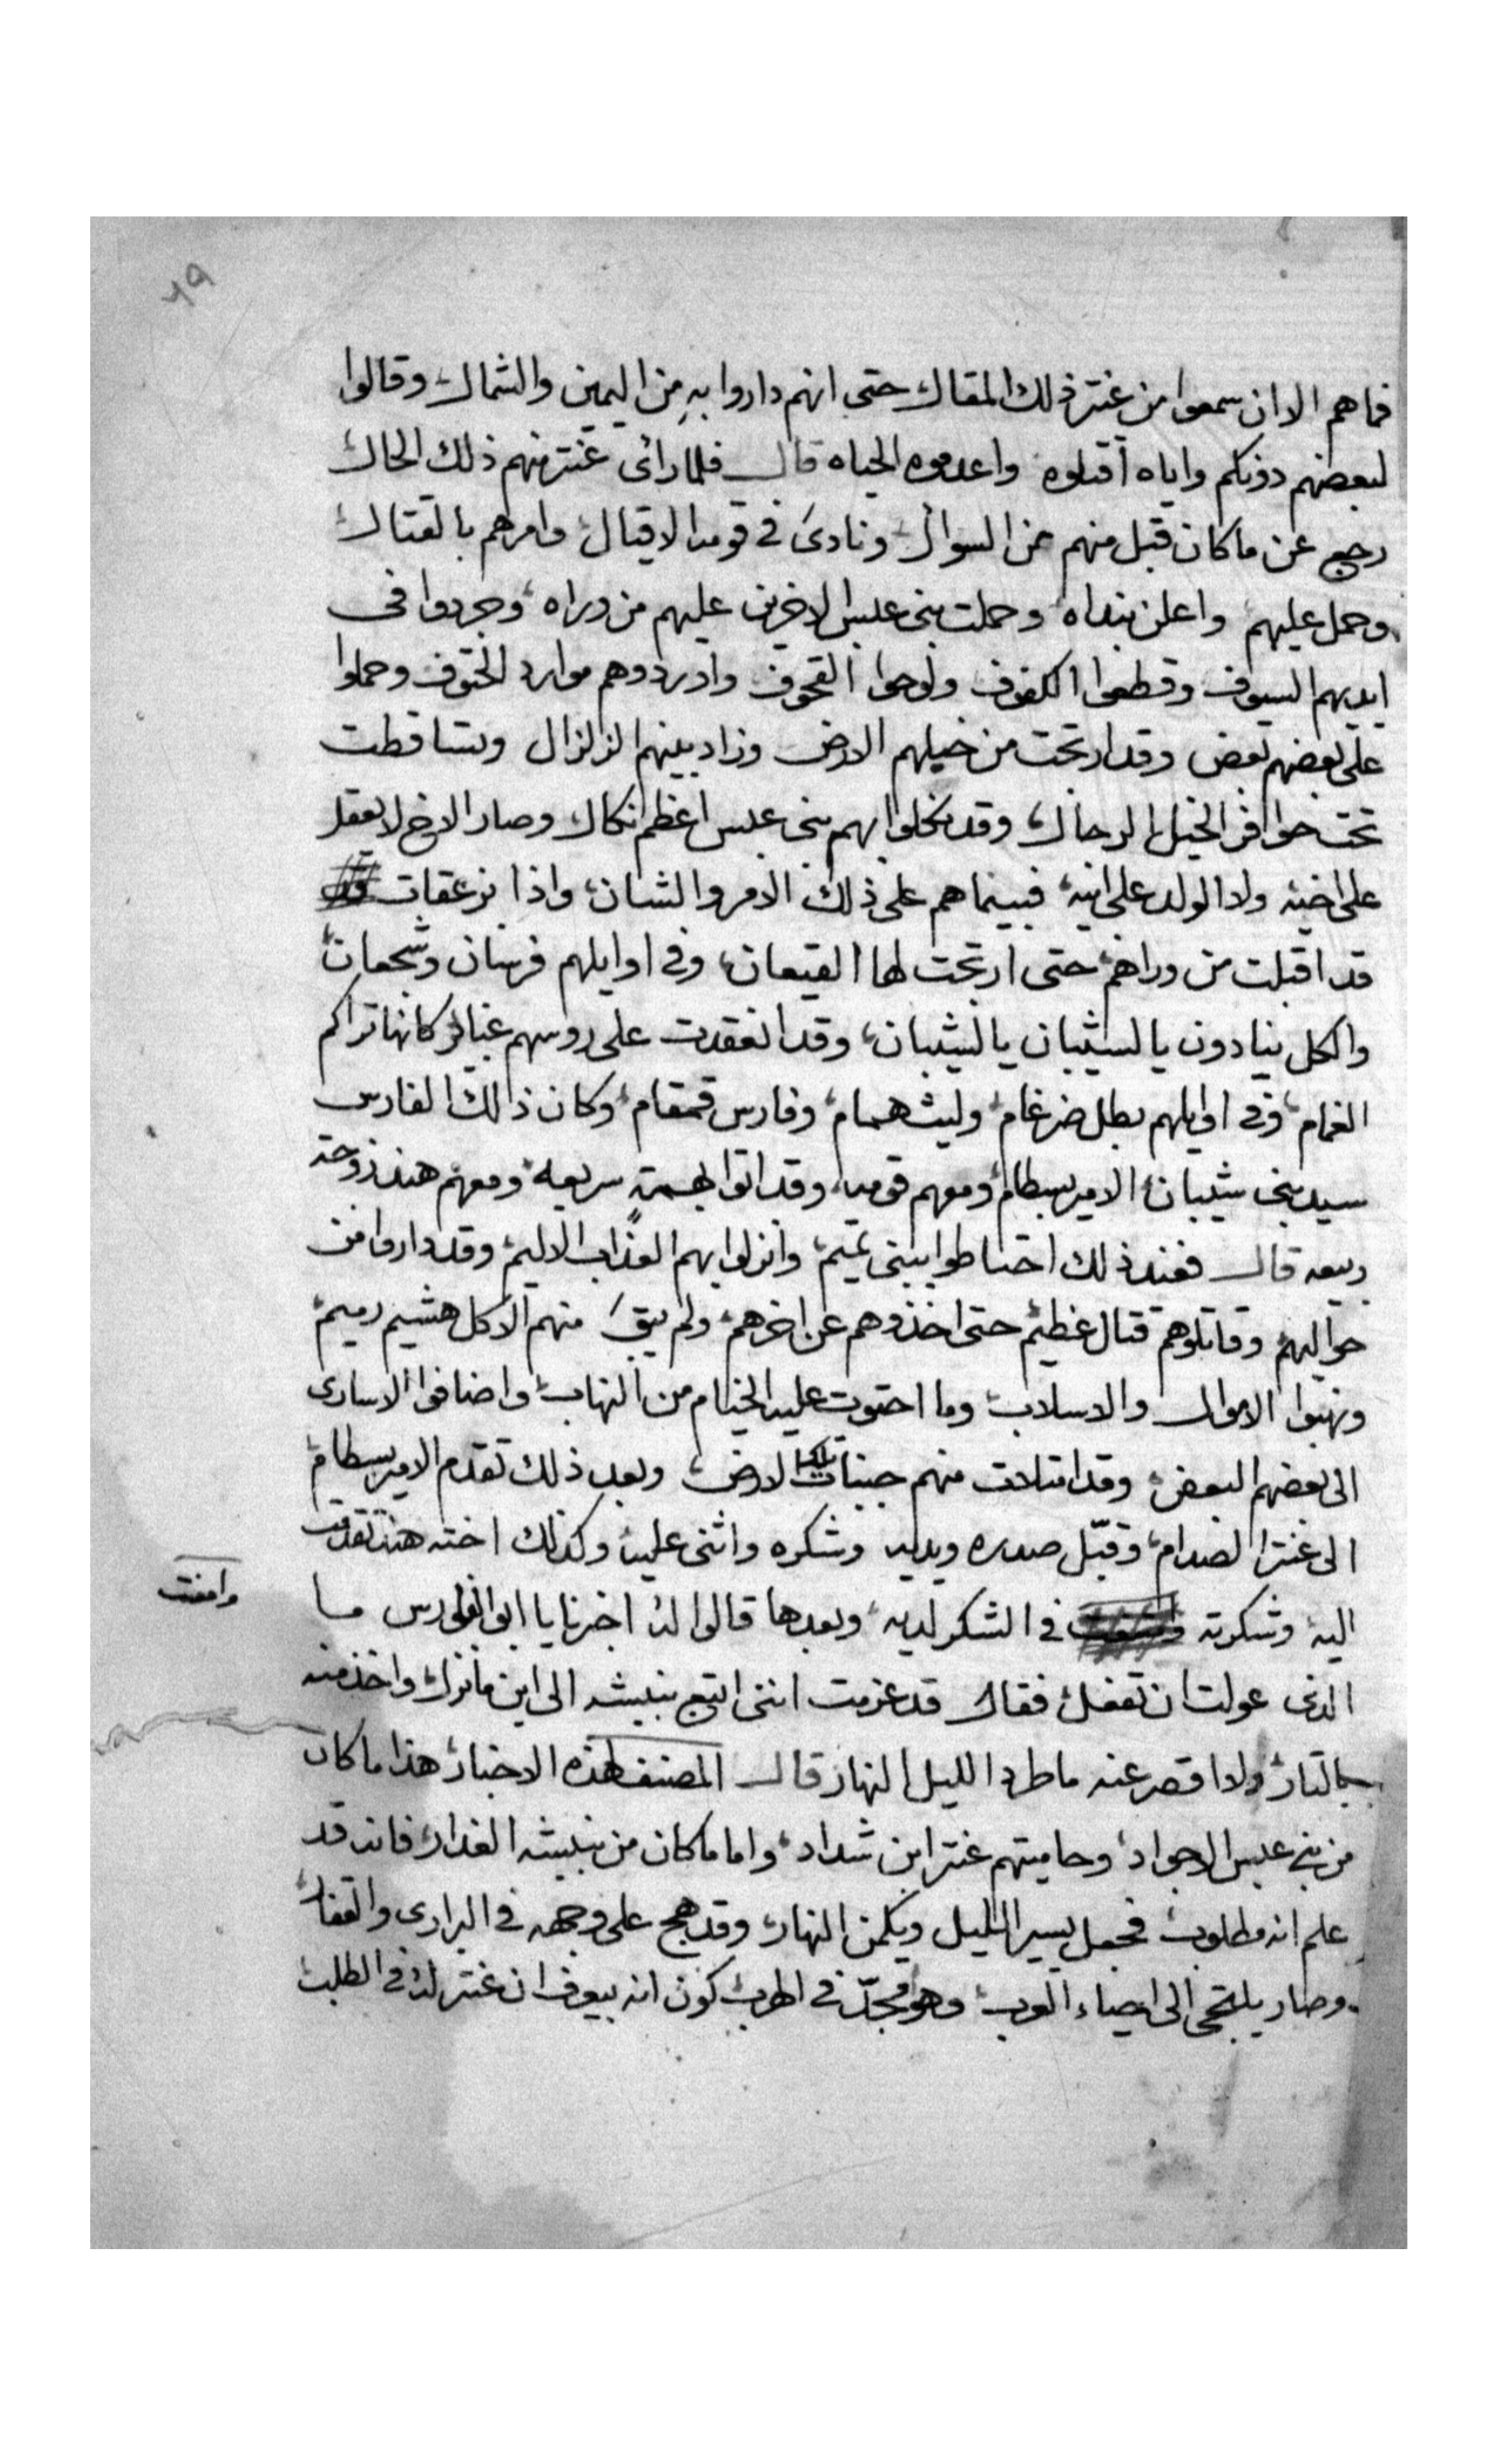 ٧٩
فما هم الا ان سمعوا من عنتر ذلك المقال حتى انهم داروا بهِ من اليمين والشمال وقالوا
لبعضهم دونكم واياه اقتلوه واعدموه الحياه قال فلما رائى عنتر منهم ذلك الحال
رجع عن ما كان قبل منهم من السوال ونادىَ في قومه الاقيال وامرهم بالقتال
وحمل عليهم واعلن بنداه وحملت بنى عبس الاخرين عليهم من وراه وجردوا فى
ايديهم السيوف وقطعوا الكفوف ولوحوا القحوف واوردوهم موارد الحتوف وحملوا
على بعضهم بعض وقد ارتجت من خيلهم الارض وزاد بينهم الزلزال وتساقطت
تحت حوافر الخيل الرجال وقد نكلوا بهم بنى عبس اعظم انكال وصار الاخ لا يعقل
على اخيه ولا الولد على ابيه فبينما هم على ذلك الامر والشان واذا بزعقات
قد اقبلت من وراهم حتى ارتجت لها القيعان وفى اوايلهم فرسان وشجعان
والكل ينادون يا لشيبان يا لشيبان وقد انعقدت على روسهم غباير كانها تراكم
الغمام وفى اوايلهم بطل ضرغام وليث همام وفارس قمقام وكان ذالك الفارس
سيد بنى شيبان الامير بسطام ومعهم قومه وقد اتوا بهمةٍ سريعه ومعهم هند زوجة
ربيعه قال فعند ذلك احتاطوا ببنى تميم وانزلوا بهم العذاب الاليم وقد داروا من
حواليهم وقاتلوهم قتال عظيم حتى اخذوهم عن اخرهم ولم يبقَ منهم الا كل هشيم رميم
ونهبوا الاموال والاسلاب وما احتوت عليه الخيام من النهاب واضافوا الاسارى
الى بعضهم البعض وقد امتلات منهم جنبات تلك الارض وبعد ذلك تقدم الامير بسطام
الى عنتر الصدام وقبّل صدره ويديه وشكره واثنى عليه وكذلك اخته هند تقدمت
اليه وشكرته وامعنت في الشكر لديه وبعدها قالوا له اخبرنا يا ابو الفوارس ما
الذى عولت ان تفعل فقال قد عزمت اننى اتبع نبيشه الى اين ما نزل واخذ منه
بالثار ولا اقصر عنه ما طرد الليل النهار قال المصنف لهذه الاخبار هذا ما كان
من بنى عبس الاجواد وحاميتهم عنتر ابن شداد واما ما كان من نبيشه الغدار فانه قد
علم انه مطلوب فجعل يسير الليل ويكمن النهار وقد هج على وجهه في البرارى والقفار
وصار يلتجى الى احياء العرب وهو مجدّ في الهرب كون انه يعرف ان عنتر له في الطلب